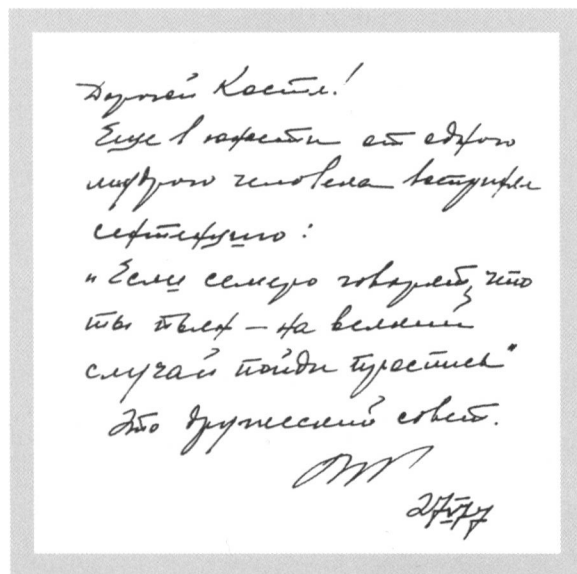 Дорогой Костя!
Еще в юности от одного
мудрого человека воспринял
сентенцию:
"Если семеро говорят, что
ты пьян – на всякий
случай пойди проспись"
Это дружеский совет.
27 V 77